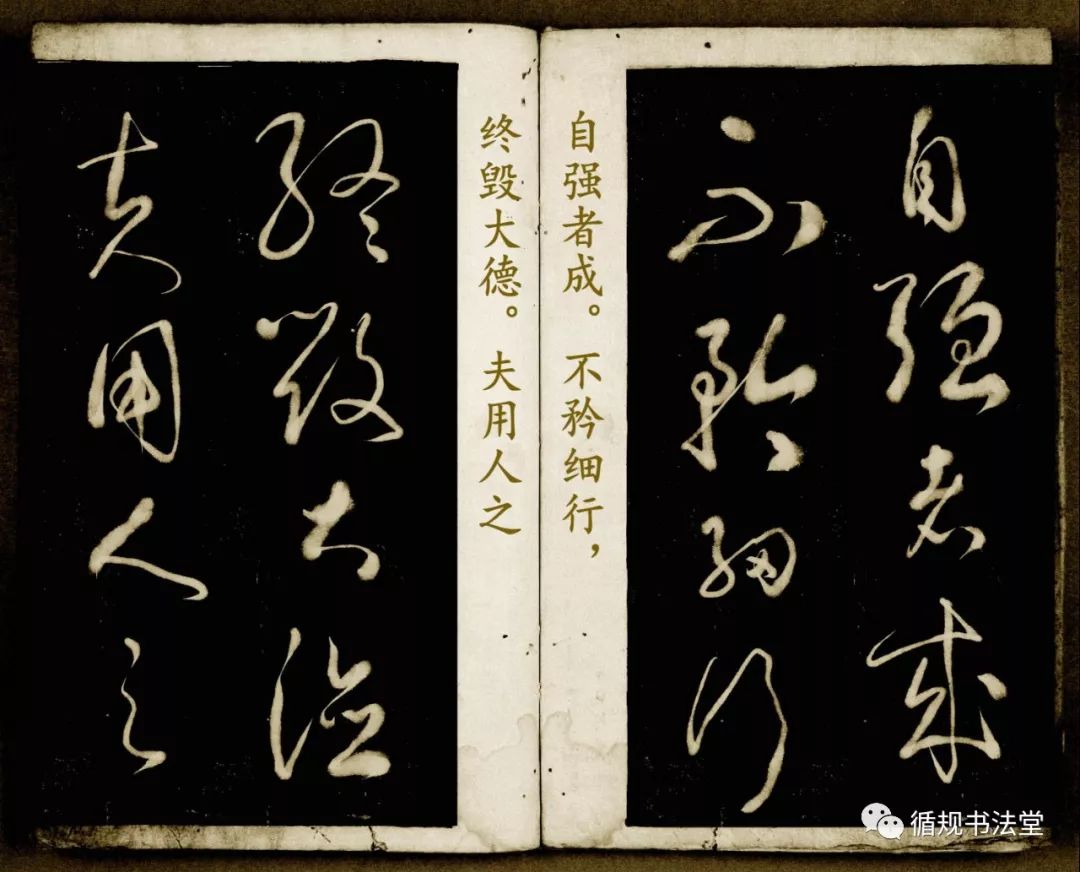 自强者成
不矜细行
自强者成。不矜细行，
终毁大德。夫用人之
终毁大德
夫用人之
循规书法堂